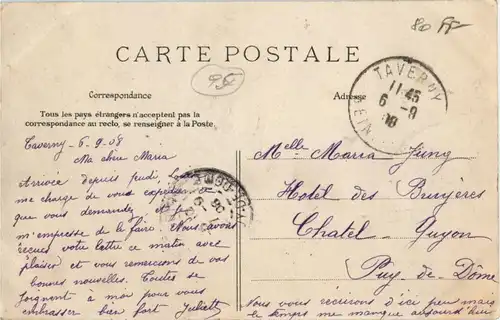 80 FF
CARTE POSTALE
95
Correspondance
Adresse
Tous les pays étrangers n'acceptent pas la
correspondance au recto, se renseigner à la Poste.
TAVERNY
11-45
6 -9
08
Taverny - 6-9-08
Ma chère Maria
Arrivée depuis jeudi,
me charge de vous
que vous demandez
m'empresse de le faire. Nous avons
reçues votre lettre ce matin avec
plaisir et vous remercions de vos
bonnes nouvelles. Toutes se
joignent à moi pour vous
embrasser bien fort Juliette
Melle Maria Jung
Hotel des Bruyeres
Chatel-Guyon
Puy-de-Dôme
Nous vous écrirons d'ici peu mais
le temps me manque aujourd'hui